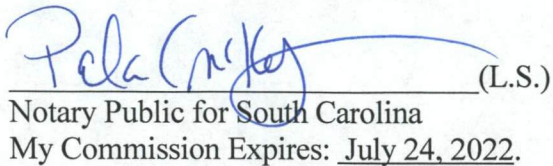 (L.S.)
Notary Public for South Carolina
My Commission Expires: July 24, 2022.